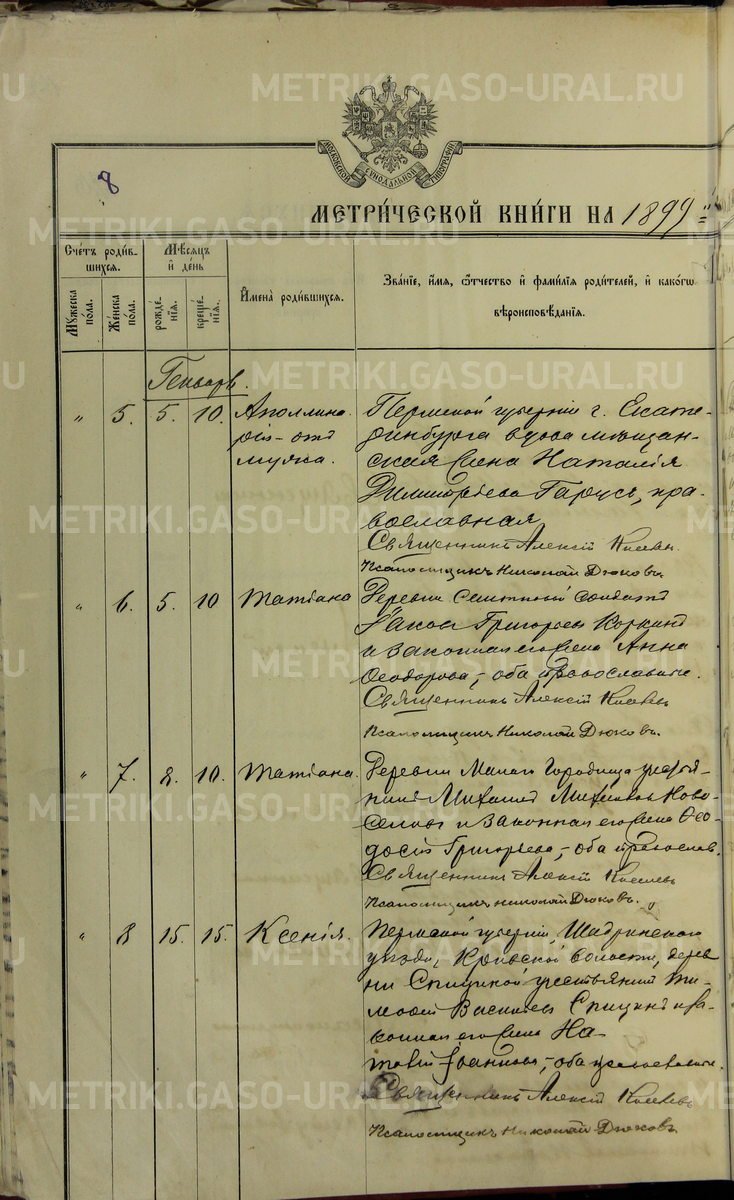 METRIKI.GASO-URAL.RU
МОСКОВСКОЙ СУНОДАЛЬНОЙ ТИПОГРАФІИ
8
МЕТРИ́ЧЕСКОЙ КНИ́ГИ НА 1899
Сче́тъ роди́в-
шихся.
Мѣ́сяцъ
и҆ де́нь
Мꙋ́жеска по́ла.
Же́нска по́ла.
рожде́-
нїѧ.
креще́-
нїѧ.
И҆мена̀ роди́вшихся.
Зва́нїе, и҆́мя, ѻ҆́тчество и҆ фами́лїя роди́телей, и҆ како́гѡ
вѣроисповѣ́данїя.
Генварь.
" 5. 5. 10. Аполлина-
рія - отъ
мужа.
Пермской губерніи г. Екате-
ринбурга вдова мѣщан-
ская жена Наталія
Димитріева Гарусъ, пра-
вославная
Священникъ Алексій
Псаломщикъ Николай Дюковъ.
" 6. 5. 10 Татіана
Деревни солдатъ
Іаковъ Григорьевъ Коркинъ
и законная его жена Анна
Ѳеодорова, - оба православные.
Священникъ Алексій
Псаломщикъ Николай Дюковъ.
" 7. 8. 10. Татіана.
Деревни Малаго Городища крестья-
нинъ Михаилъ Михайловъ Ново-
селовъ и законная его жена Ѳео-
досія Григорьева, - оба православ.
Священникъ Алексій
Псаломщикъ Николай Дюковъ.
" 8 15. 15. Ксенія.
Пермской губерніи, Шадринскаго
уѣзда, Кривской волости, дерев-
ни Спициной крестьянинъ Ти-
моѳей Васильевъ Спицинъ и за-
конная его жена На-
талія Іоаннова, - оба православные.
Священникъ Алексій
Псаломщикъ Николай Дюковъ.